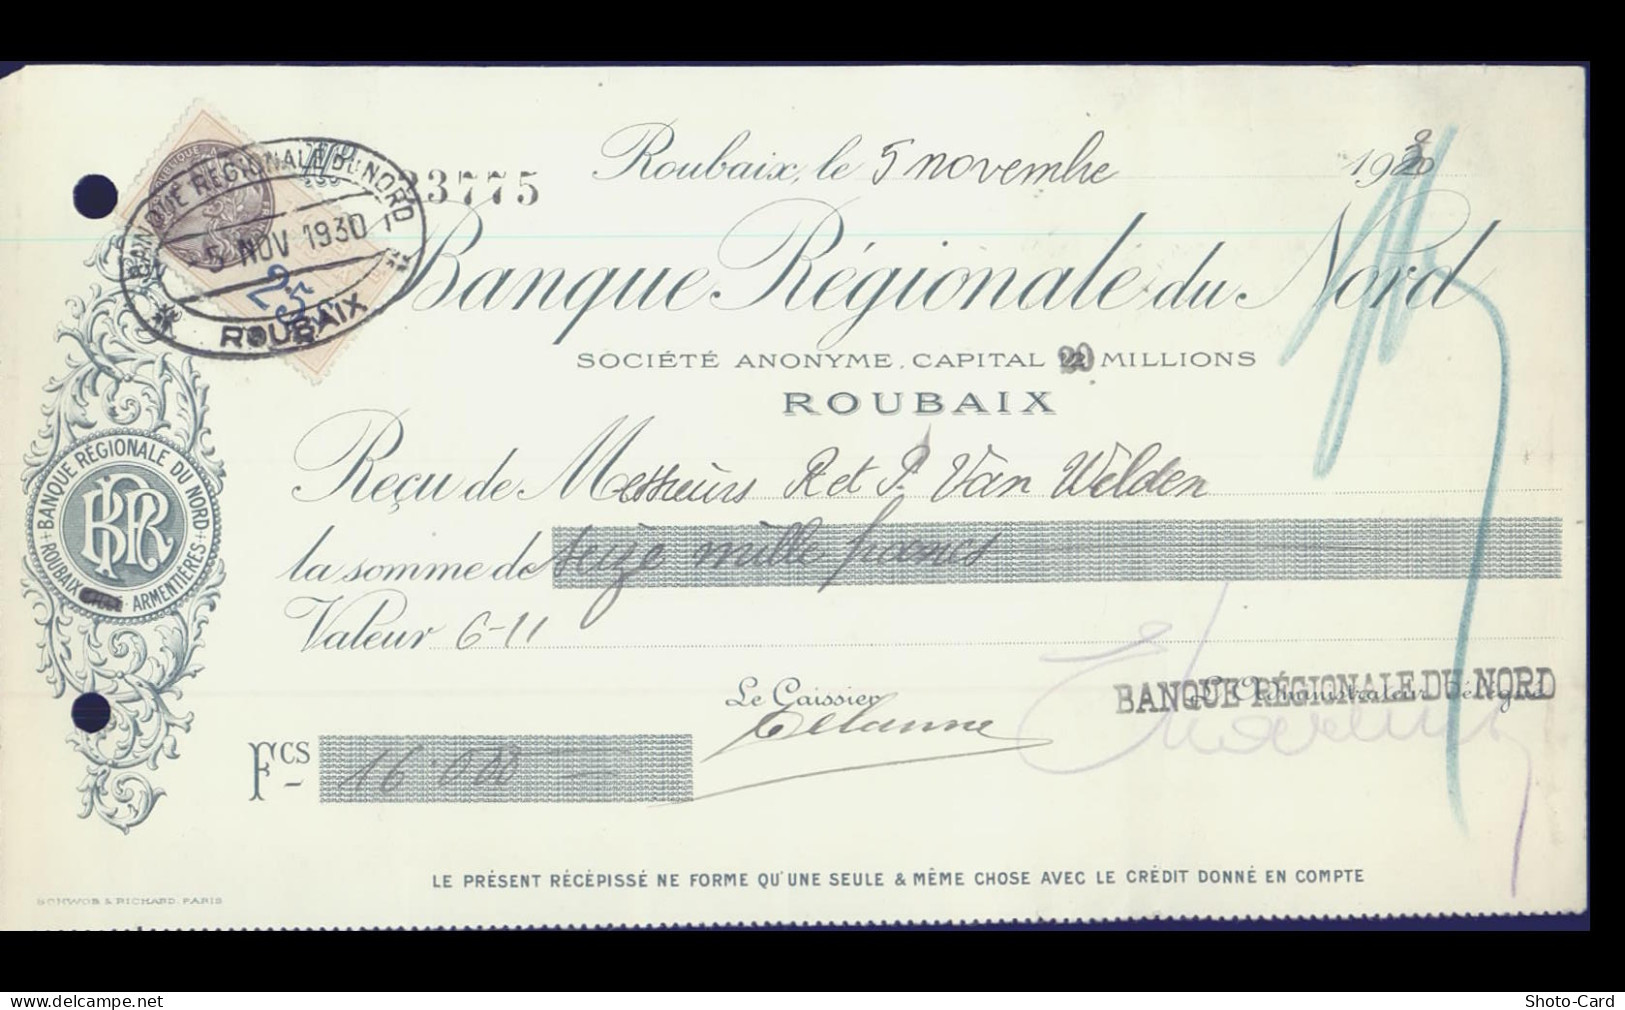 Roubaix, le 5 novembre 1930
33775
BANQUE RÉGIONALE DU NORD
5 NOV 1930
ROUBAIX
25
Banque Régionale du Nord
SOCIÉTÉ ANONYME, CAPITAL 20 MILLIONS
ROUBAIX
Reçu de Messieurs R et P. Van Welden
la somme de seize mille francs
Valeur 6-11
BANQUE RÉGIONALE DU NORD
ROUBAIX ARMENTIÈRES
BRN
Le Caissier
BANQUE RÉGIONALE DU NORD
L'Administrateur Délégué
Fcs 16.000
LE PRÉSENT RÉCÉPISSÉ NE FORME QU'UNE SEULE & MÊME CHOSE AVEC LE CRÉDIT DONNÉ EN COMPTE
SCHWOB & RICHARD, PARIS
www.delcampe.net
Shoto-Card